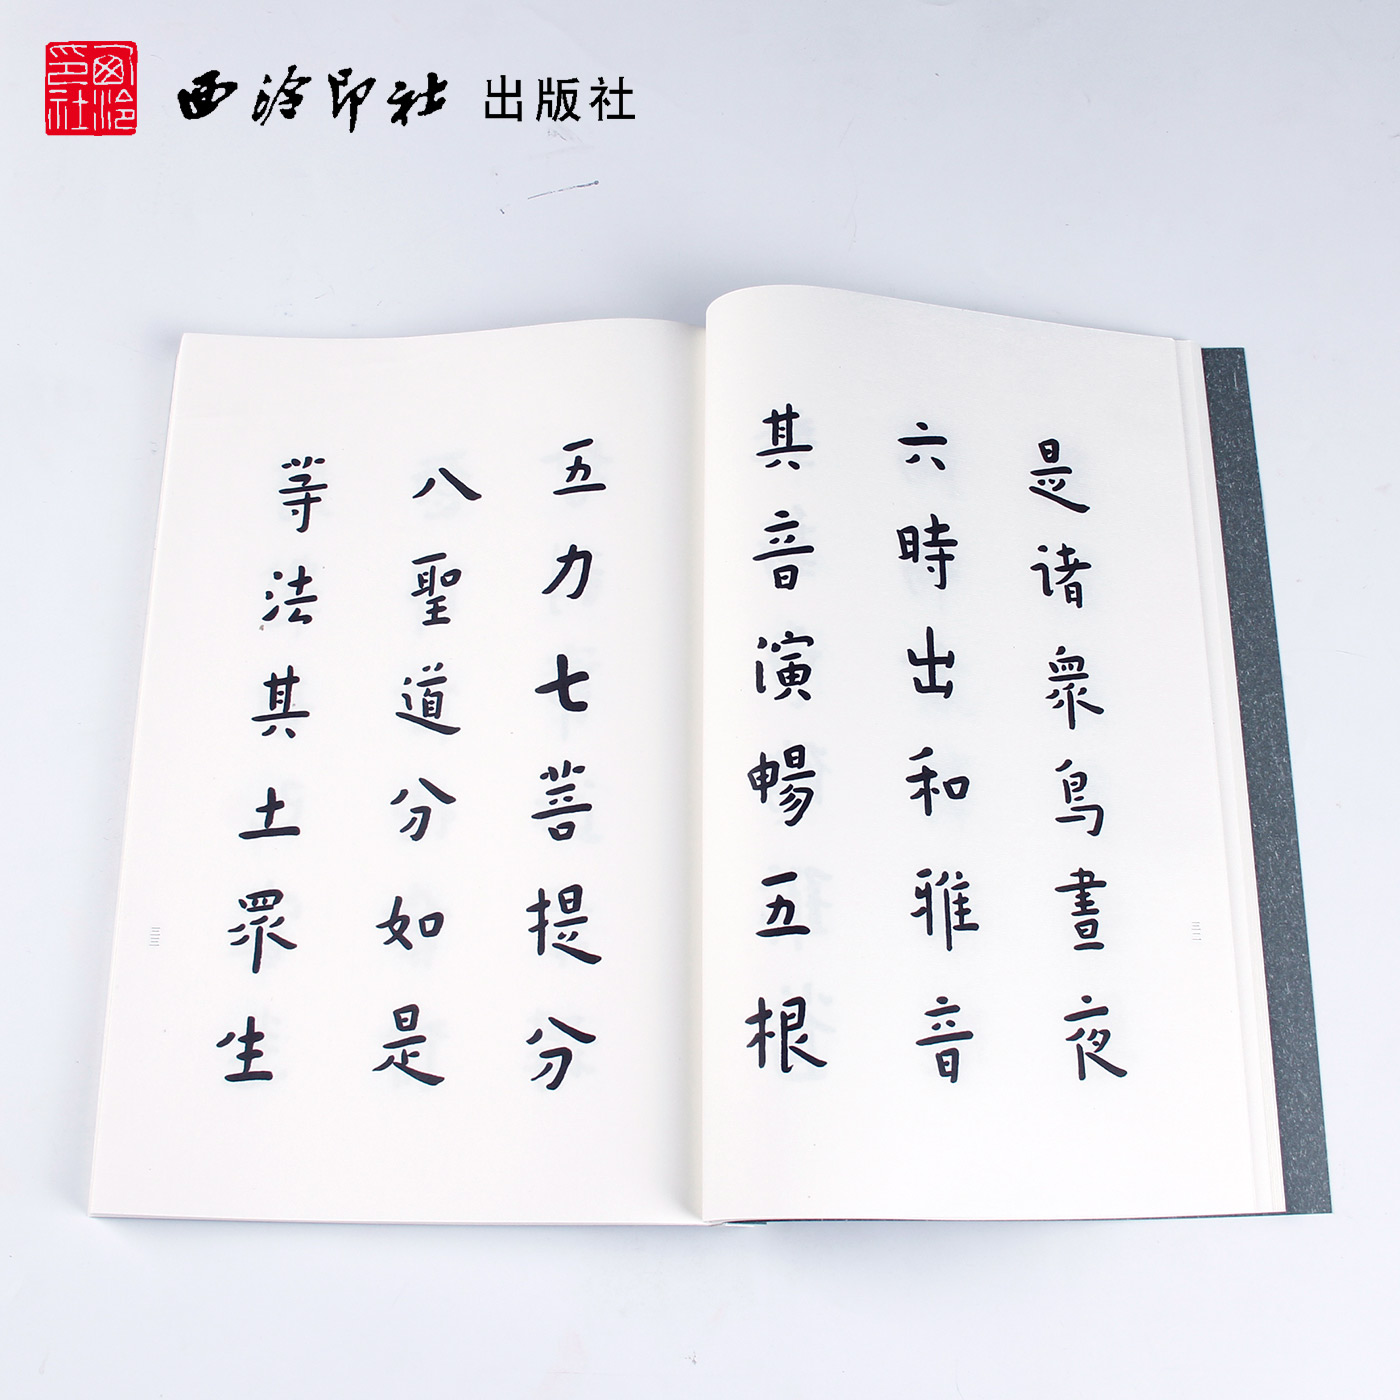 西泠印社
西泠印社 出版社
是諸衆鳥晝夜
六時出和雅音
其音演暢五根
三二
五力七菩提分
八聖道分如是
等法其土眾生
三三